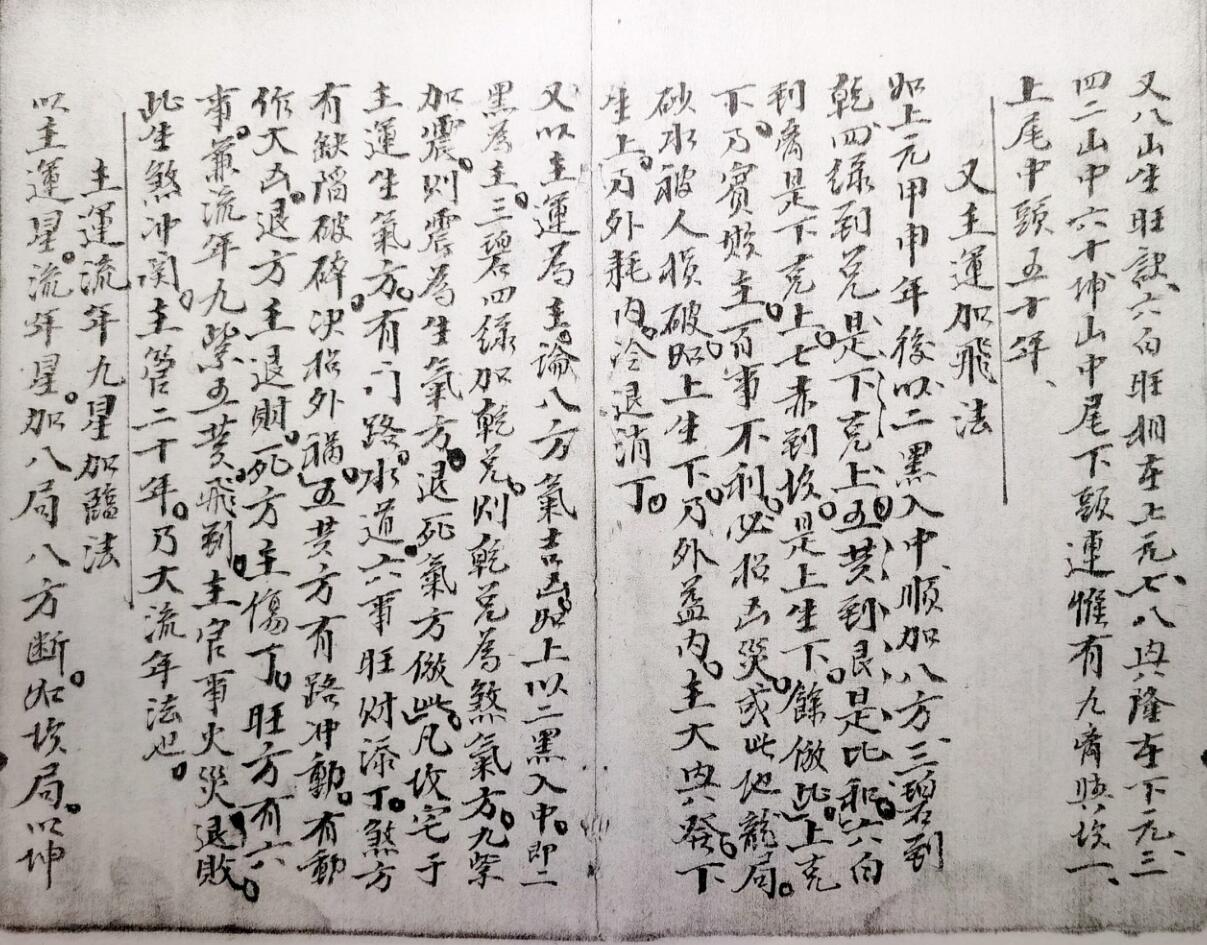 又八山生旺訣、六白旺相在上元、七八興隆在下元、三
四二山中六十、坤山中尾下頭連、惟有九离與坎一、
上尾中頭五十年、
又主運加飛法
如上元甲申年後、以二黑入中、順加八方、三碧到
乾、四綠到兌、是下克上、五黄到艮、是比和、六白
到离、是下克上、七赤到坎、是上生下、餘倣此、上克
下、乃賓欺主、百事不利、必招凶災、或此地龍局。
砂水被人損破、如上生下、乃外益内、主大興發、下
生上、乃外耗内、冷退消丁。
又以主運為主、論八方氣吉凶、如上以二黑入中、即二
黑為主、三碧四綠加乾兌、則乾兌為煞氣方、九紫
加震、則震為生氣方、退死氣方倣此、凡坟宅于
主運生氣方、有门路水道六事、旺财添丁。煞方
有缺陷破碎、决招外禍、五黄方有路冲動、有動
作大凶、退方主退財、死方主傷丁、旺方有六
事、兼流年九紫五黄飛到、主官事火災退敗、
此生煞冲関、主管二十年、乃大流年法也。
主運流年九星加臨法
以主運星。流年星。加八局八方断。如坎局。以坤